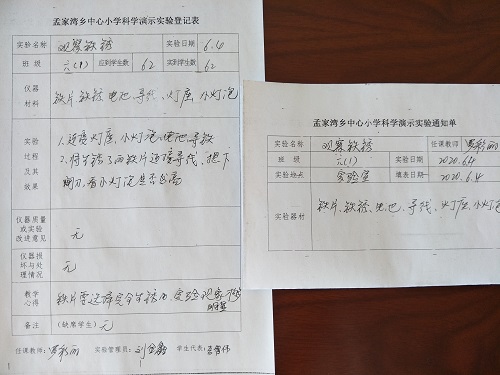 孟家湾乡中心小学科学演示实验登记表
实验名称 观察铁锈 实验日期 6.4
班 级 六(1) 应到学生数 62 实到学生数 62
仪器材料 铁片 铁锈 电池、导线、灯座、小灯泡
实验过程及其效果
1.连接灯座、小灯泡、电池 导线
2.将生锈了的铁片连接导线、
闸刀,看小灯泡是否发亮
仪器质量或实验改进意见 无
仪器损坏与处理情况 无
教学心得 铁片要选择完全生锈的、实验现象
明显
备注 (缺席学生) 无
任课教师: 实验管理员: 学生代表:
孟家湾乡中心小学科学演示实验通知单
实验名称 观察铁锈 任课教师
班 级 六(1) 实验日期 2020.6.4
实验地点 实验室 填表日期 2020.6.4
实验器材 铁片、铁锈、电池、导线、灯座、小灯泡